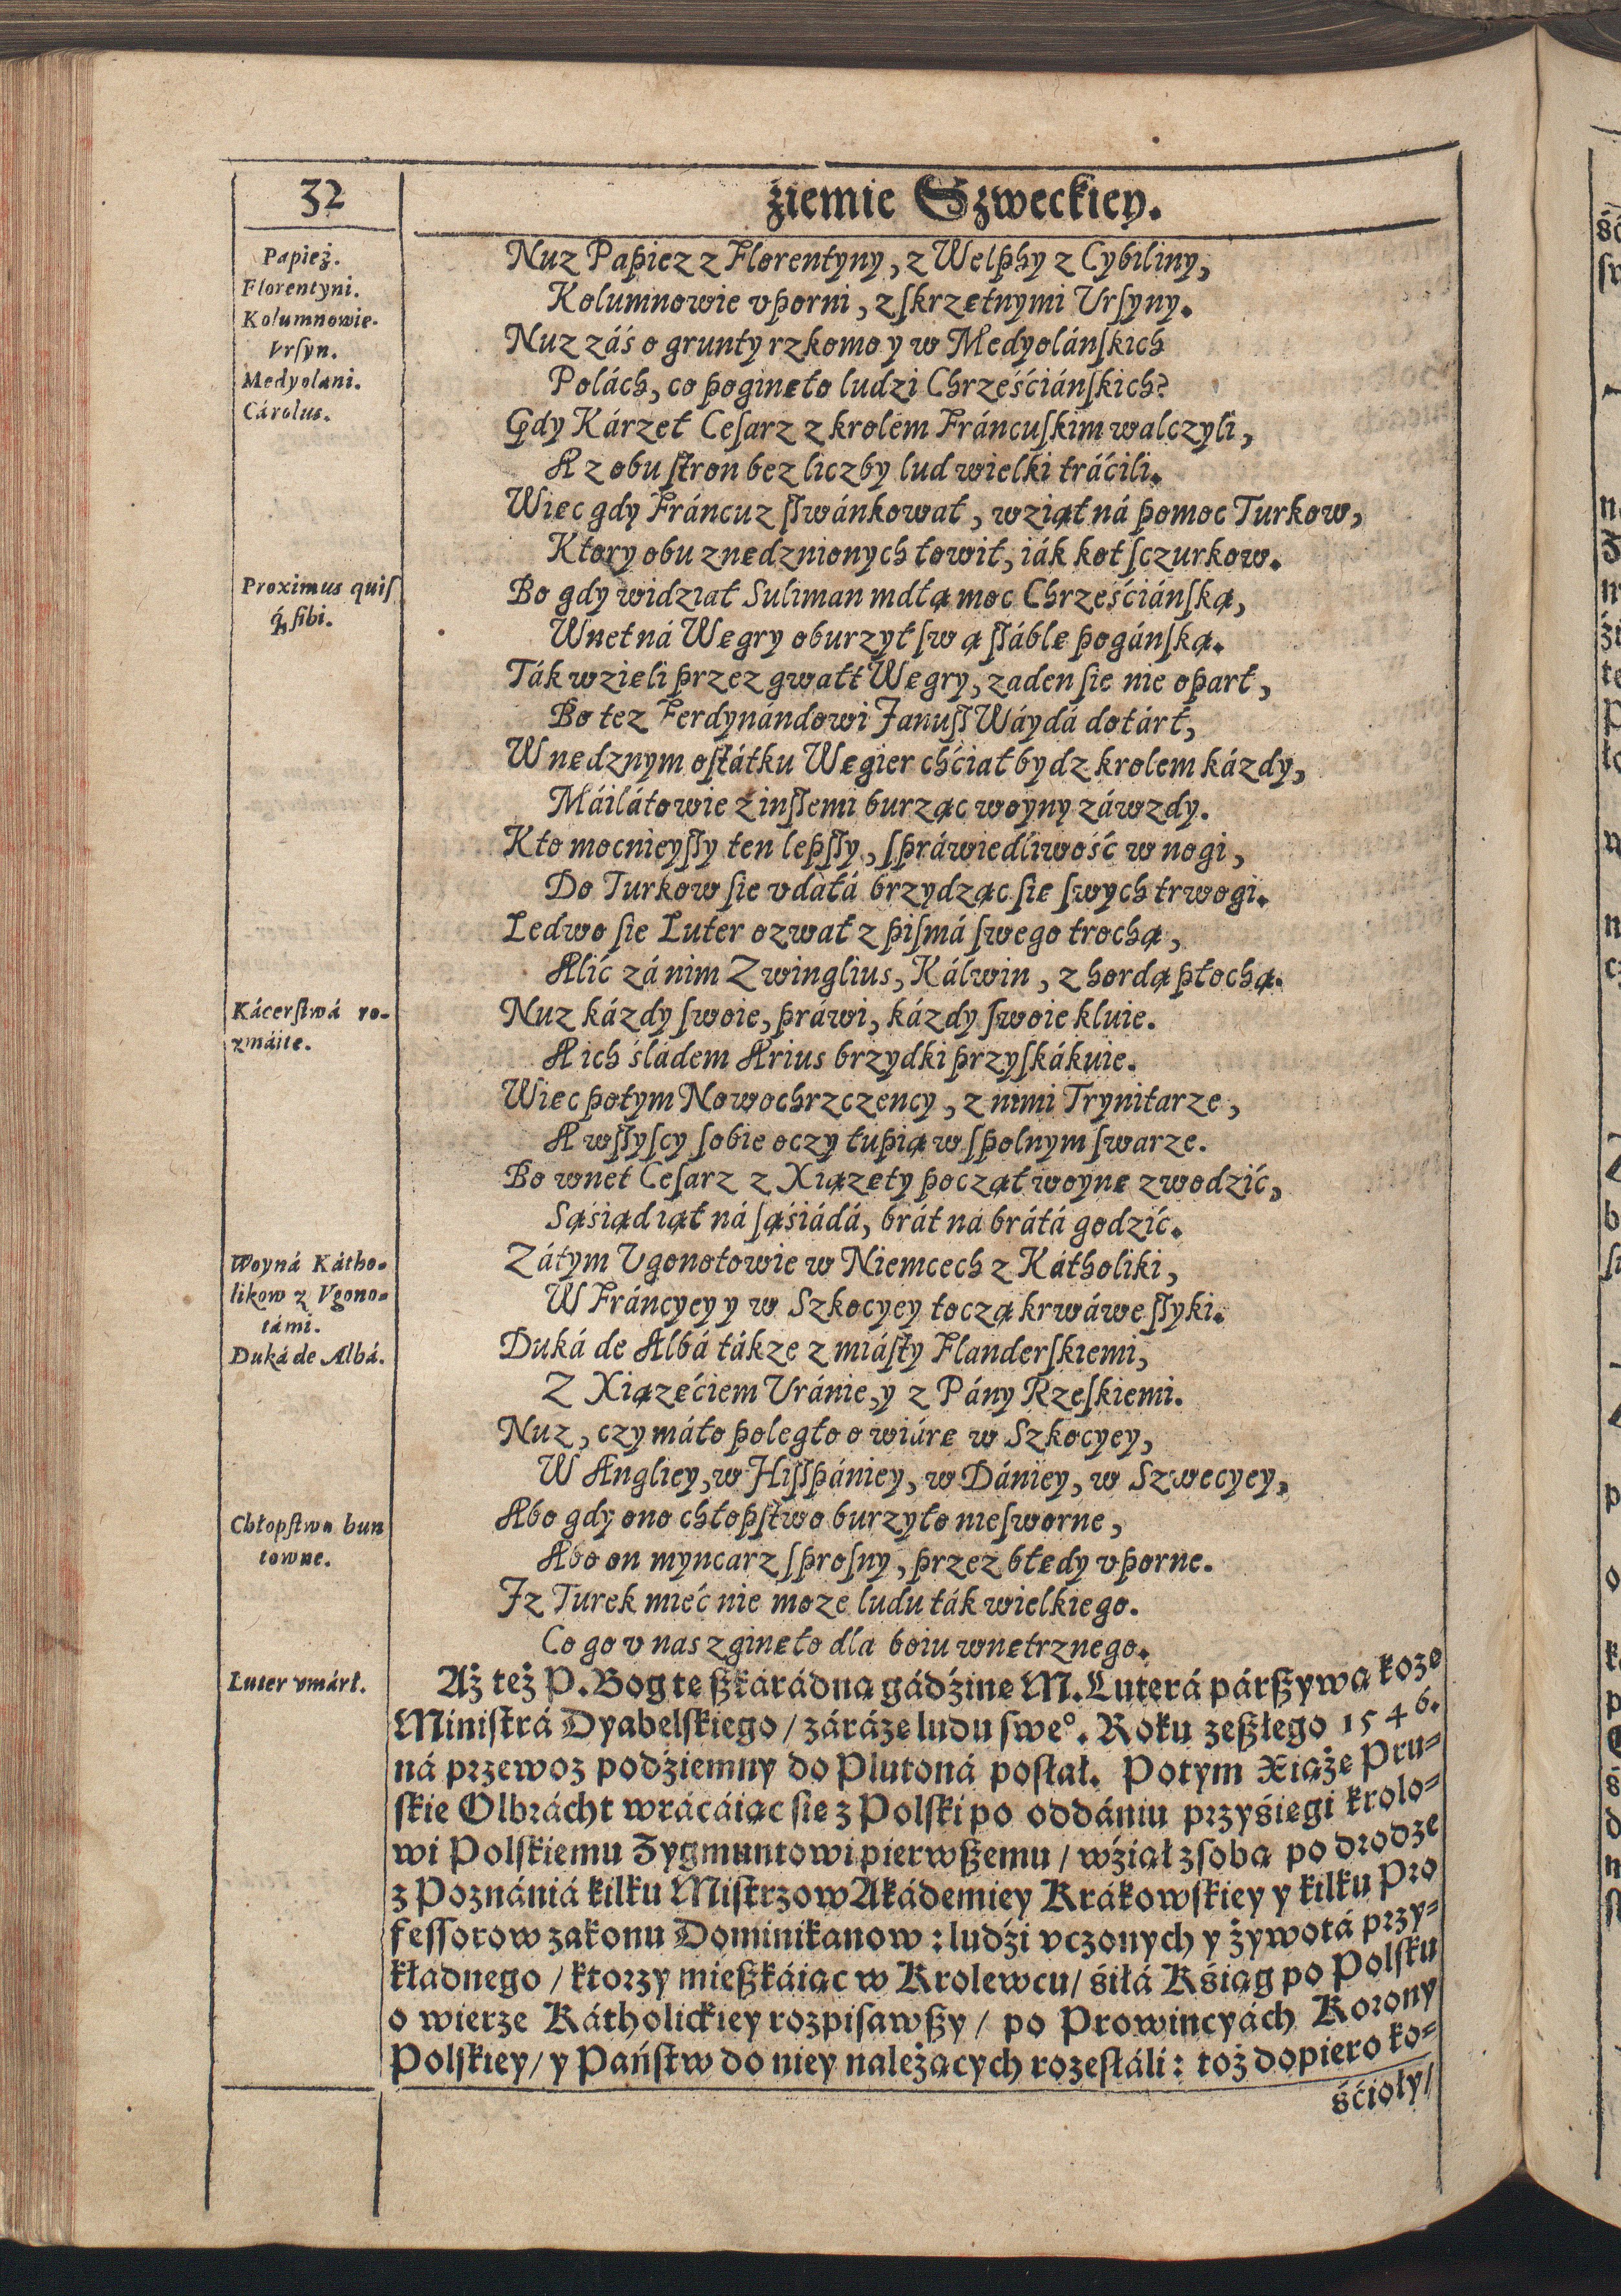 32
ziemie Szweckiey.
Papież.
Florentyni.
Kolumnowie.
Vrſyn.
Medyolani.
Cárolus.
Nuz Papiez z Florentyny, z Welphy z Cybiliny,
Kolumnowie vporni, z ſkrzetnymi Urſyny.
Nuz záś o grunty rzkomo y w Medyoláńſkich
Polách, co pogineło ludzi Chrześćiáńſkich?
Gdy Kárzeł Ceſarz z krolem Fráncuſkim walczyli,
A z obu ſtron bez liczby lud wielki tráćili.
Wiec gdy Fráncuz ſſwánkował, wziął ná pomoc Turkow,
Ktory obu znedznionych łowił, iák kot ſczurkow.
Proximus quiſ
q́ ſibi.
Bo gdy widział Suliman mdłą moc Chrześćiánſką,
Wnet ná Wegry oburzył ſwą ſſáble pogánſką.
Ták wzieli przez gwałt Wegry, zaden ſie nie oparł,
Bo tez Ferdynándowi Januſſ Wáydá dotárł,
W nedznym oſtátku Wegier chćiał bydz krolem kázdy,
Máilátowie z inſſemi burząc woyny záwzdy.
Kto mocnieyſſy ten lepſſy, ſpráwiedliwość w nogi,
Do Turkow ſie vdáłá brzydząc ſie ſwych trwogi.
Ledwo ſie Luter ozwał z piſmá ſwego trochą,
Alić zá nim Zwinglius, Kálwin, z hordą płochą.
Kácerſtwá ro-
zmáite.
Nuz kázdy ſwoie, práwi, kázdy ſwoie kluie.
A ich śládem Arius brzydki przyſkákuie.
Wiec potym Nowochrzczency, z nimi Trynitarze,
A wſſyſcy ſobie oczy łupią w ſpolnym ſwarze.
Bo wnet Ceſarz z Xiązety począł woyne zwodzić,
Sąśiad iął ná ſąśiádá, brát ná brátá godzić.
Woyná Kátho-
likow z Vgono-
támi.
Duká de Albá.
Zátym Ugonotowie w Niemcech z Kátholiki,
W Fráncyey y w Szkocyey toczą krwáwe ſſyki.
Duká de Albá tákze z miáſty Flanderſkiemi,
Z Xiązećiem Uránie, y z Pány Rzeſkiemi.
Nuz, czy máło poległo o wiáre w Szkocyey,
W Angliey, w Hiſſpániey, w Dániey, w Szwecyey,
Chłopſtwo bun
towne.
Abo gdy ono chłopſtwo burzyło nieſworne,
Abo on myncarz ſproſny, przez błedy vporne.
Iz Turek mieć nie moze ludu ták wielkiego.
Co go v nas zgineło dla boiu wnetrznego.
Luter vmárł.
Aż też P. Bog te ßkárádną gádźine M. Luterá párßywą koze
Miniſtrá Dyabelſkiego / zárázę ludu ſwe°. Roku zeßłego 1546.
ná przewoz podźiemny do Plutoná poſłał. Potym Xiąże Pru-
ſkie Olbrácht wrácáiąc ſie z Polſki po oddániu przyśięgi krolo-
wi Polſkiemu Zygmuntowi pierwßemu / wźiął z ſobą po drodze
z Poznániá kilku Miſtrzow Akádemiey Krákowſkiey y kilku Pro
feſſorow zakonu Dominikanow : ludźi vczonych y żywotá przy-
kładnego / ktorzy mießkáiąc w Krolewcu / śiłá Kśiąg po Polſku
o wierze Kátholickiey rozpiſawßy / po Prowincyách Korony
Polſkiey / y Państw do niey należących rozeſłáli : toż dopiero ko-
śćioły /